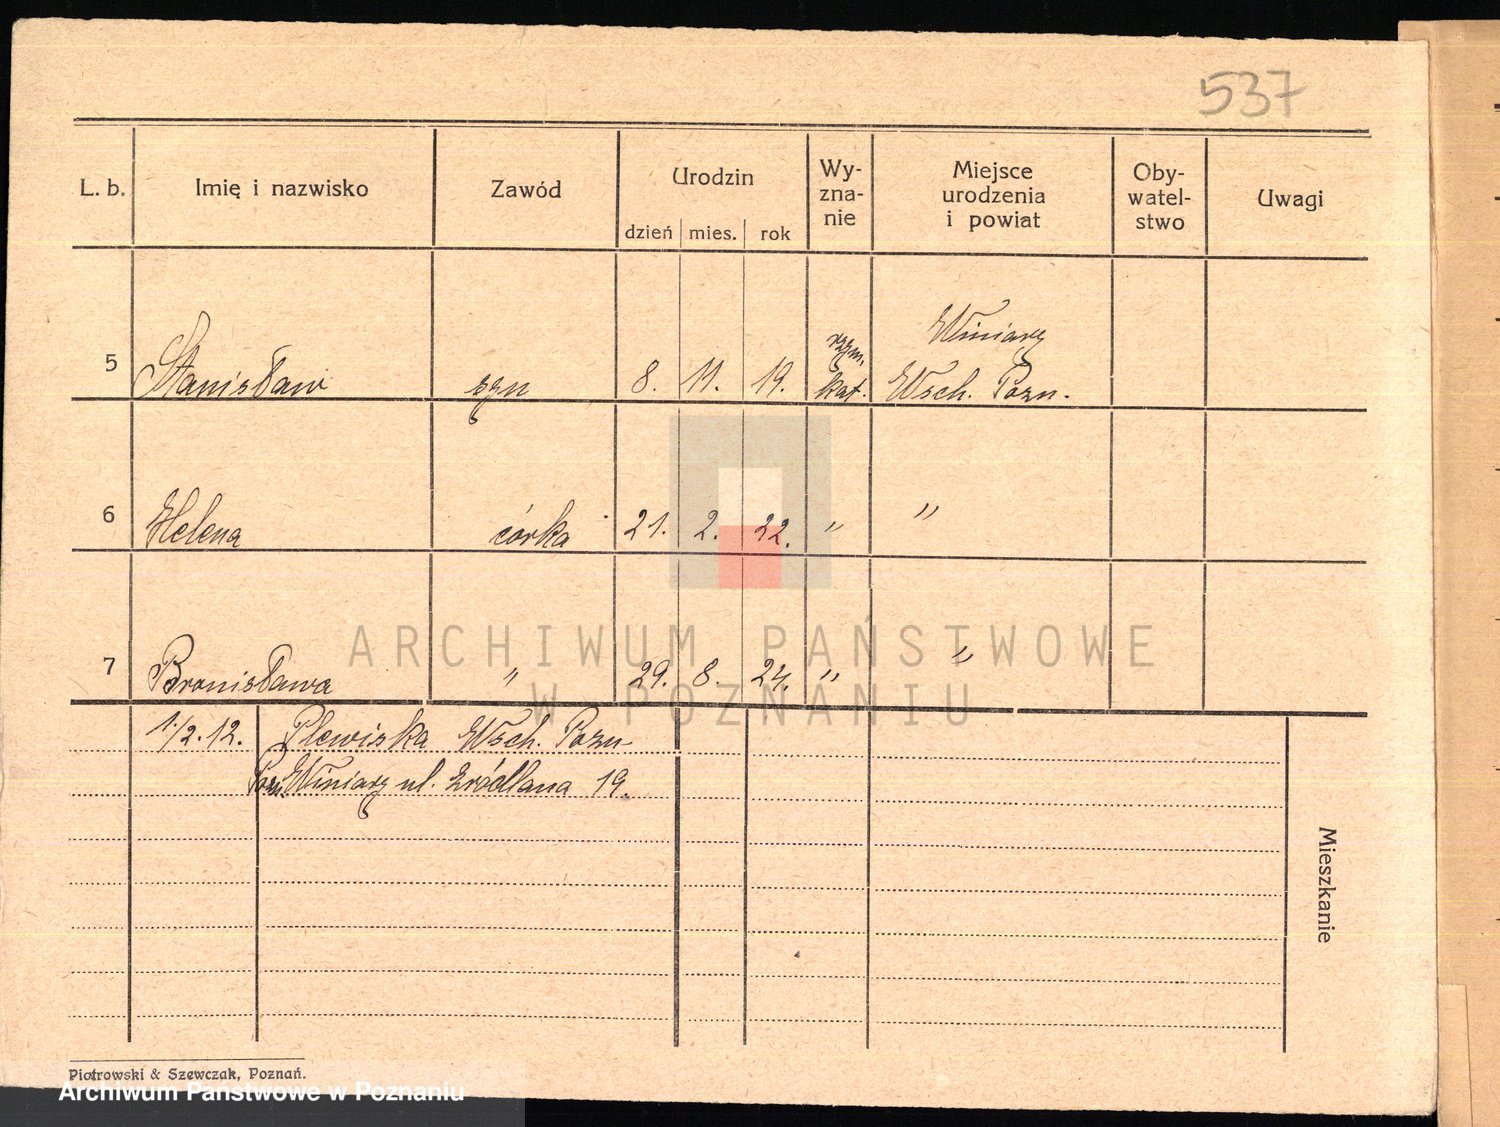 537
L. b. Imię i nazwisko Zawód Urodzin Wy-zna-nie Miejsce urodzenia i powiat Oby-watel-stwo Uwagi
dzień mies. rok
Winiary
5 Stanisław syn 8. 11. 19. rzym. kat. Wsch. Pozn.
6 Helena córka 21. 2. 22. " "
7 Bronisława " 29. 8. 24. " "
ARCHIWUM PAŃSTWOWE
W POZNANIU
1./2. 12. Plewiska Wsch. Pozn.
Pozn. Winiary ul. Źródlana 19.
Mieszkanie
Piotrowski & Szewczak, Poznań.
Archiwum Państwowe w Poznaniu